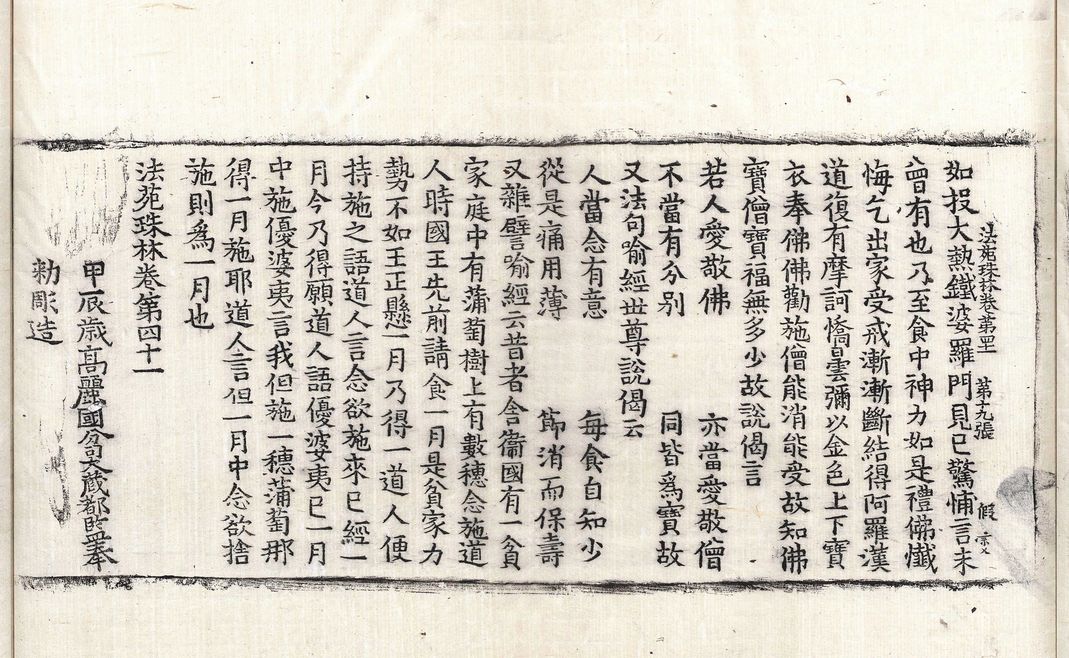 法苑珠林卷第四十一 第十九張 假
如投大熱鐵婆羅門見已驚怖言未
曾有也乃至食中神力如是禮佛懺
悔乞出家受戒漸漸斷結得阿羅漢
道復有摩訶憍曇彌以金色上下寶
衣奉佛佛勸施僧能消能受故知佛
寶僧寶福無多少故說偈言
若人愛敬佛 亦當愛敬僧
不當有分別 同皆爲寶故
又法句喻經世尊說偈云
人當念有意 每食自知少
從是痛用薄 節消而保壽
又雜譬喻經云昔者舍衞國有一貧
家庭中有蒲萄樹上有數穗念施道
人時國王先前請食一月是貧家力
勢不如王正懸一月乃得一道人便
持施之語道人言念欲施來已經一
月今乃得願道人語優婆夷已一月
中施優婆夷言我但施一穗蒲萄那
得一月施耶道人言但一月中念欲捨
施則爲一月也
法苑珠林卷第四十一
甲辰歲高麗國分司大藏都監奉
勅彫造